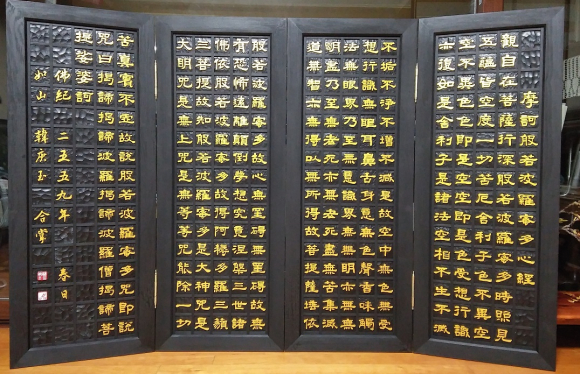 摩訶般若波羅蜜多心經
觀自在菩薩行深般若波羅蜜多時照見
五蘊皆空度一切苦厄舍利子色不異空
空不異色色即是空空即是色受想行識
亦復如是舍利子是諸法空相不生不滅
不垢不淨不增不減是故空中無色無受
想行識無眼耳鼻舌身意無色聲香味觸
法無眼界乃至無意識界無無明亦無無
明盡乃至無老死亦無老死盡無苦集滅
道無智亦無得以無所得故菩提薩埵依
般若波羅蜜多故心無罣碍無罣碍故無
有恐怖遠離顛倒夢想究竟涅槃三世諸
佛依般若波羅蜜多故得阿耨多羅三藐
三菩提故知般若波羅蜜多是大神咒是
大明咒是無上咒是無等等咒能除一切
苦真實不虛故說般若波羅蜜多咒即說
咒曰揭諦揭諦波羅揭諦波羅僧揭諦菩
提娑婆訶
佛紀 二五五九年 春日
如山 韓庚玉 合掌